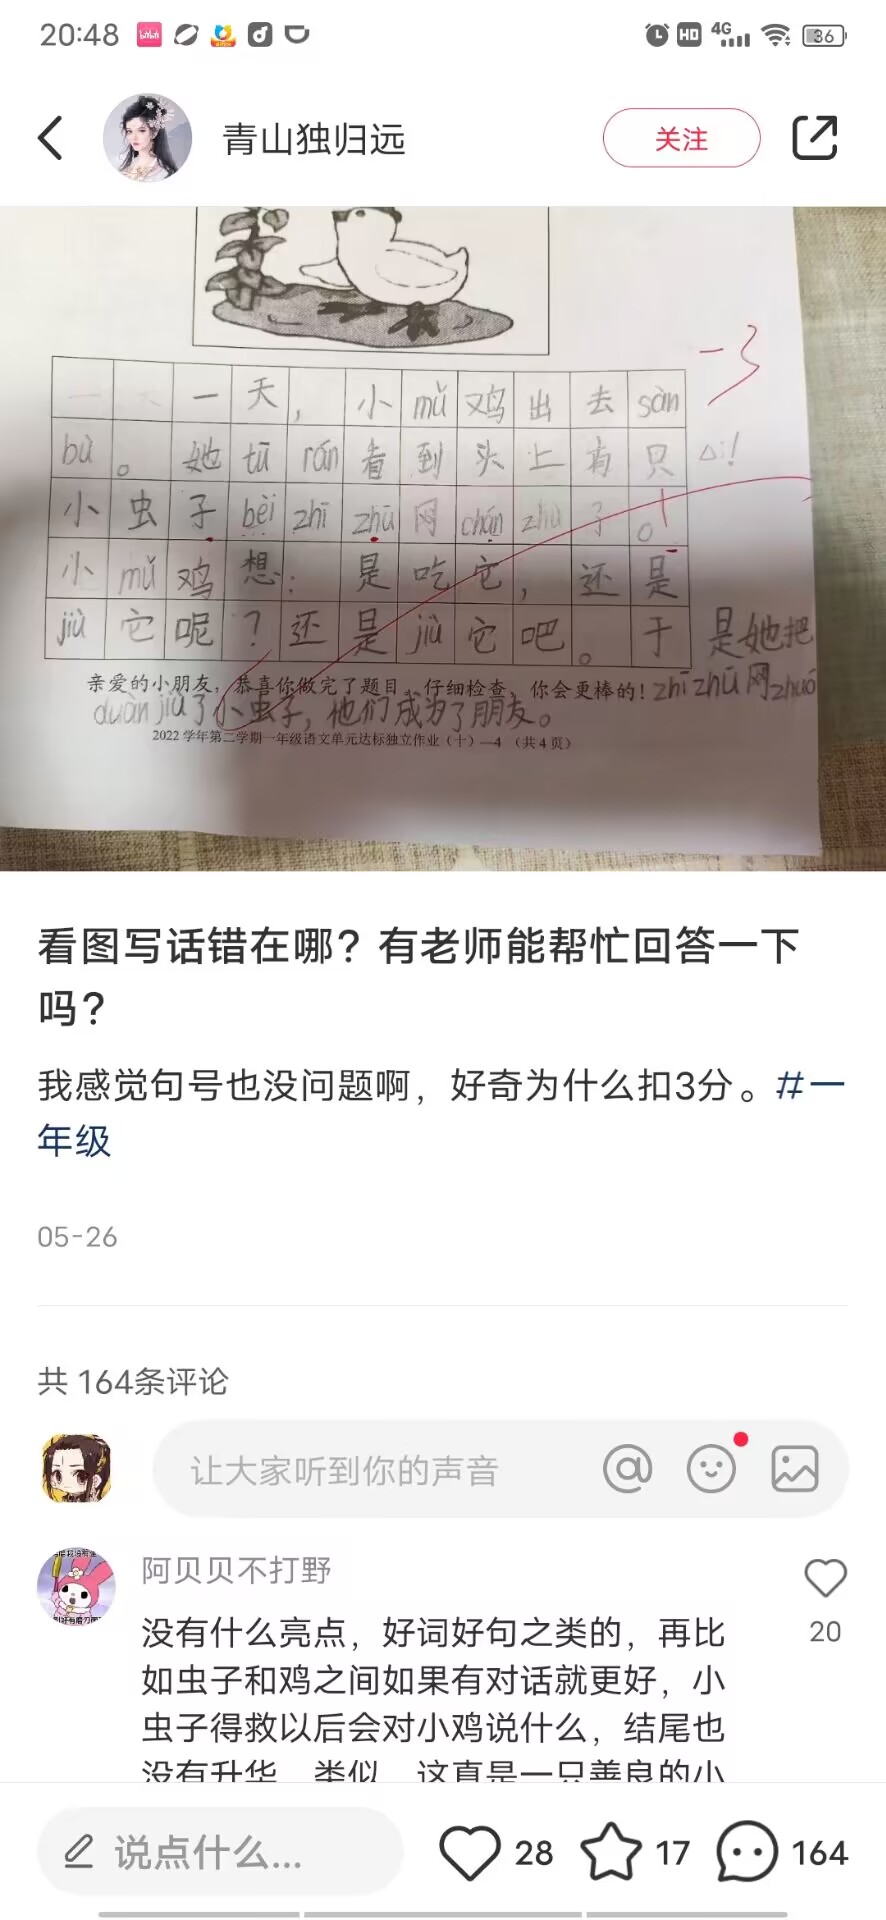 20:48
HD
4G
36
青山独归远
关注
-3
一天，小mǔ鸡出去sàn
bù。她tū rán看到头上有只
小虫子bèi zhī zhū网chán zhù了。
小mǔ鸡想：是吃它，还是
jiù它呢？还是jiù它吧。于是她把
亲爱的小朋友，恭喜你做完了题目，仔细检查，你会更棒的！zhī zhū网zhuó
duàn jiù了小虫子，他们成为了朋友。
2022学年第二学期一年级语文单元达标独立作业（十）—4 （共4页）
看图写话错在哪？有老师能帮忙回答一下
吗？
我感觉句号也没问题啊，好奇为什么扣3分。#一
年级
05-26
共 164条评论
让大家听到你的声音
阿贝贝不打野
没有什么亮点，好词好句之类的，再比
20
如虫子和鸡之间如果有对话就更好，小
虫子得救以后会对小鸡说什么，结尾也
没有升华，类似，这真是一只善良的小
说点什么...
28
17
164